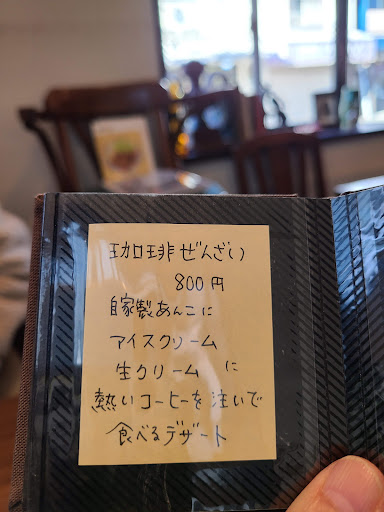 珈琲ぜんざい
800円
自家製あんこに
アイスクリーム
生クリーム に
熱いコーヒーを注いで
食べるデザート